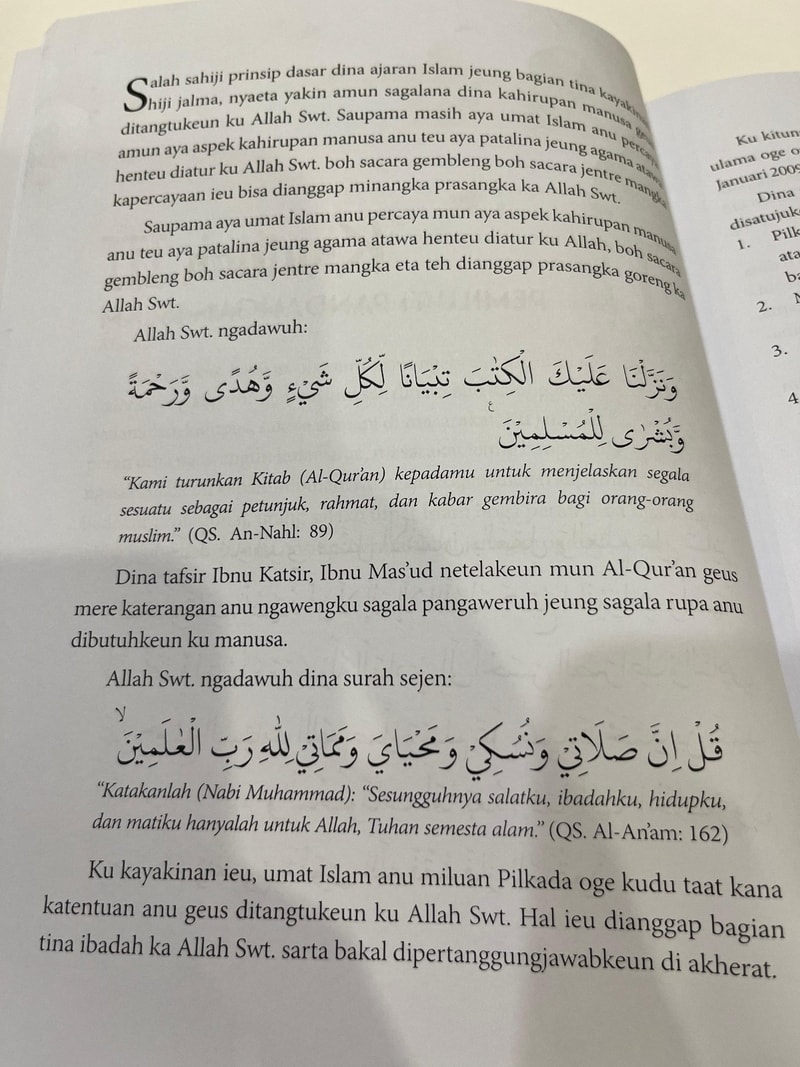 Salah sahiji prinsip dasar dina ajaran Islam jeung bagian tina kayakinan
hiji jalma, nyaeta yakin amun sagalana dina kahirupan manusa geus
ditangtukeun ku Allah Swt. Saupama masih aya umat Islam anu percaya
amun aya aspek kahirupan manusa anu teu aya patalina jeung agama atawa
henteu diatur ku Allah Swt. boh sacara gembleng boh sacara jentre mangka
kapercayaan ieu bisa dianggap minangka prasangka ka Allah Swt.
Saupama aya umat Islam anu percaya mun aya aspek kahirupan manusa
anu teu aya patalina jeung agama atawa henteu diatur ku Allah, boh sacara
gembleng boh sacara jentre mangka eta teh dianggap prasangka goreng ka
Allah Swt.
Allah Swt. ngadawuh:
وَنَزَّلْنَا عَلَيْكَ الْكِتٰبَ تِبْيَانًا لِّكُلِّ شَيْءٍ وَّهُدًى وَّرَحْمَةً
وَّبُشْرٰى لِلْمُسْلِمِيْنَ ࣖ
“Kami turunkan Kitab (Al-Qur’an) kepadamu untuk menjelaskan segala
sesuatu sebagai petunjuk, rahmat, dan kabar gembira bagi orang-orang
muslim.” (QS. An-Nahl: 89)
Dina tafsir Ibnu Katsir, Ibnu Mas’ud netelakeun mun Al-Qur’an geus
mere katerangan anu ngawengku sagala pangaweruh jeung sagala rupa anu
dibutuhkeun ku manusa.
Allah Swt. ngadawuh dina surah sejen:
قُلْ اِنَّ صَلَاتِيْ وَنُسُكِيْ وَمَحْيَايَ وَمَمَاتِيْ لِلّٰهِ رَبِّ الْعٰلَمِيْنَۙ
“Katakanlah (Nabi Muhammad): “Sesungguhnya salatku, ibadahku, hidupku,
dan matiku hanyalah untuk Allah, Tuhan semesta alam.” (QS. Al-An’am: 162)
Ku kayakinan ieu, umat Islam anu miluan Pilkada oge kudu taat kana
katentuan anu geus ditangtukeun ku Allah Swt. Hal ieu dianggap bagian
tina ibadah ka Allah Swt. sarta bakal dipertanggungjawabkeun di akherat.
Ku
ulama oge
Januari 2009
Dina
1.
2.
3.
4